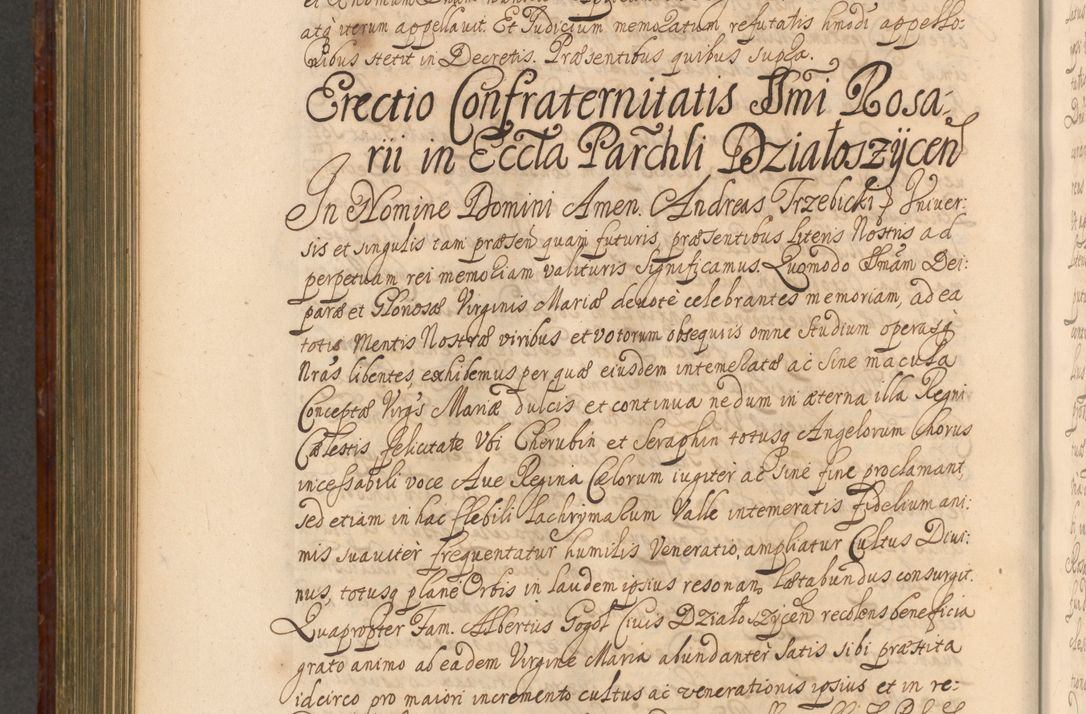 atq iterum appellavit. Et Judicium memoratum refutatis hmodi appello-
nibus stetit in Decretis. Præsentibus quibus supra.
Erectio Confraternitatis SSmi Rosa-
rii in Eccła Parchli Działoszÿcen
In Nomine Domini Amen. Andreas Trzebicki &c Univer-
sis et singulis tam præsen quam futuris, præsentibus Literis Nostris ad
perpetuam rei memoriam valituris significamus. Quomodo SSmam Dei-
paræ et Gloriosæ Virginis Mariæ devotè celebrantes memoriam, ad ea
totis Mentis Nostræ viribus et votorum obsequiis omne studium operasq
Nras libentes exhibemus per quæ eiusdem intemeratæ ac sine macula
Conceptæ Virgs Mariæ dulcis et continua nedum in æterna illa Regni
Cælestis felicitate Ubi Cherubin et Seraphin totusq Angelorum Chorus
incessabili voce Ave Regina Cælorum iugiter ac sine fine proclamant,
sed etiam in hac flebili Lachrymarum Valle intemeratis Fidelium ani-
mis suaviter frequentatur humilis Veneratio, ampliatur Cultus Divi-
nus, totusq plane Orbis in laudem ipsius resonan lætabundus consurgit.
Quapropter Fam. Albertus Gogoł Civis Działoszÿcen recolens beneficia
grato animo ab eadem Virgine Maria abundanter satis sibi præstita
idcirco pro maiori incremento cultus ac venerationis ipsius et in re-